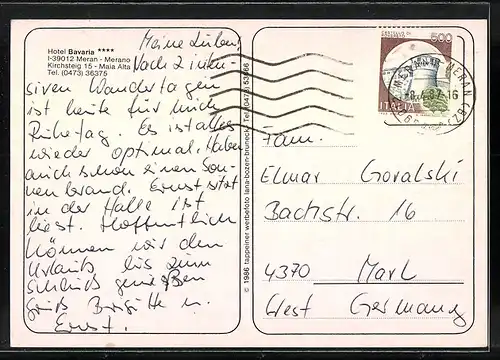 Hotel Bavaria ****
I-39012 Meran - Merano
Kirchsteig 15 - Maia Alta
Tel. (0473) 36375
Meine Lieben,
Nach 2 inten-
siven Wandertagen
ist heute für mich
Ruhetag. Es ist alles
wieder optimal. Haben
auch schon einen Son-
nenbrand. Ernst sitzt
in der Halle ist
liest. Hoffentlich
können wir den
Urlaub bis zum
Schluß genießen
Gruß Brigitte u.
Ernst.
© 1986 tappeiner werbefoto lana-bozen-bruneck Tel. (0473)
500
ITALIA
MERANO MERAN (BZ)
-8.4.87-16
Fam.
Elmar Goralski
Bachstr. 16
4370 Marl
West Germany